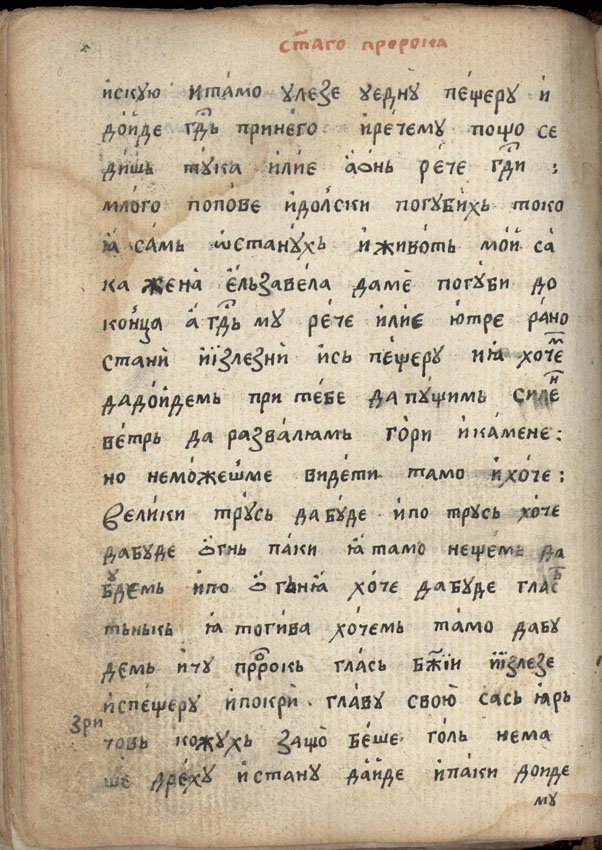 ст҃аго пророка
искую̀ и та́мо улѐзе у едну̀ пе́щеру и҆
до́йде гд҇ь при нѐго и҆ рѐче му пощо се
дѝшь ту́ка или́е а ѻ́нь ре́че гд҇и :
мло́го попо́ве и҆до́лски погуби́хь токо
ꙗ҆ са́мь ѡ҆стану́хь и҆ живо́ть мо́й са́
ка жена̀ є҆льзаве́ла да мѐ погуби до
ко́нца а҆ гд҇ь му ре́че или́е ю́тре ра́но
стани̇̀ и҆ и҆злезни̇̀ ись пе́щеру и ꙗ҆ хо́чем
да до́йдемь при те́бе да пу́щимь силен
ве́трь да развалюмь го́ри и ка́мене :
но не мо́жешме виде́ти тамо и҆ хо́че :
вели́ки тру́сь да бу́де и҆ по трусь хо́че
да бу́де ѻ҆гнь паки ꙗ҆ тамо не щемь да
будемь и҆ по ѻ҆гьнꙗ̀ хо́че да бу́де гласъ
тъ́нькь ꙗ҆ тоги́ва хо́чемь та́мо да бу
демь и҆ чу прⷪ҇рокь гла́сь бж҃їи и҆злезе
и҆с пе́щеру и҆ покрѝ гла́ву свою̀ сась ꙗ҆рь
зри
товь кожу́хь защо̀ бе́ше го́ль нема
шѐ дре́ху и҆ стану да̀йде и҆ паки доиде
му